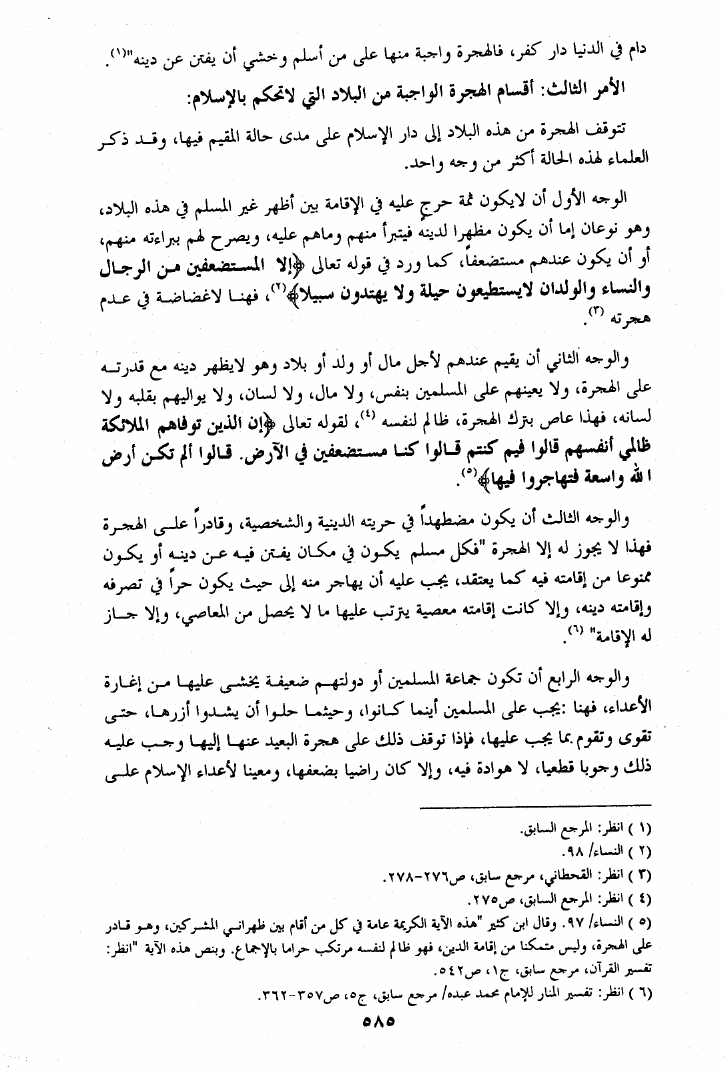 دام في الدنيا دار كفر، فالهجرة واجبة منها على من أسلم وخشي أن يفتن عن دينه"(١).
الأمر الثالث: أقسام الهجرة الواجبة من البلاد التي لاتحكم بالإسلام:
تتوقف الهجرة من هذه البلاد إلى دار الإسلام على مدى حالة المقيم فيها، وقد ذكر
العلماء لهذه الحالة أكثر من وجه واحد.
الوجه الأول أن لايكون ثمة حرج عليه في الإقامة بين أظهر غير المسلم في هذه البلاد،
وهو نوعان إما أن يكون مظهرا لدينه فيتبرأ منهم وماهم عليه، ويصرح لهم ببراءته منهم،
أو أن يكون عندهم مستضعفاً، كما ورد في قوله تعالى ﴿إلا المستضعفين من الرجال
والنساء والولدان لايستطيعون حيلة ولا يهتدون سبيلا﴾(٢)، فهنا لاغضاضة في عدم
هجرته (٣).
والوجه الثاني أن يقيم عندهم لأجل مال أو ولد أو بلاد وهو لايظهر دينه مع قدرته
على الهجرة، ولا يعينهم على المسلمين بنفس، ولا مال، ولا لسان، ولا يواليهم بقلبه ولا
لسانه، فهذا عاص بترك الهجرة، ظالم لنفسه (٤)، لقوله تعالى ﴿إن الذين توفاهم الملائكة
ظالمي أنفسهم قالوا فيم كنتم قالوا كنا مستضعفين في الأرض. قالوا ألم تكن أرض
الله واسعة فتهاجروا فيها﴾(٥).
والوجه الثالث أن يكون مضطهداً في حريته الدينية والشخصية، وقادراً على الهجرة
فهذا لا يجوز له إلا الهجرة "فكل مسلم يكون في مكان يفتن فيه عن دينه أو يكون
ممنوعا من إقامته فيه كما يعتقد، يجب عليه أن يهاجر منه إلى حيث يكون حراً في تصرفه
وإقامته دينه، وإلا كانت إقامته معصية يترتب عليها ما لا يحصل من المعاصي، وإلا جاز
له الإقامة" (٦).
والوجه الرابع أن تكون جماعة المسلمين أو دولتهم ضعيفة يخشى عليها من إغارة
الأعداء، فهنا :يجب على المسلمين أينما كانوا، وحيثما حلوا أن يشدوا أزرها، حتى
تقوى وتقوم بما يجب عليها، فإذا توقف ذلك على هجرة البعيد عنها إليها وجب عليه
ذلك وجوبا قطعيا، لا هوادة فيه، وإلا كان راضيا بضعفها، ومعينا لأعداء الإسلام على
(١) انظر: المرجع السابق.
(٢) النساء/ ٩٨.
(٣) انظر: القحطاني، مرجع سابق، ص٢٧٦-٢٧٨.
(٤) انظر: المرجع السابق، ص٢٧٥.
(٥) النساء/ ٩٧. وقال ابن كثير "هذه الآية الكريمة عامة في كل من أقام بين ظهراني المشركين، وهو قادر
على الهجرة، وليس متمكنا من إقامة الدين، فهو ظالم لنفسه مرتكب حراما بالإجماع. وبنص هذه الآية "انظر:
تفسير القرآن، مرجع سابق، ج١، ص٥٤٢.
(٦) انظر: تفسير المنار للإمام محمد عبده/ مرجع سابق، ج٥، ص٣٥٧-٣٦٢.
٥٨٥